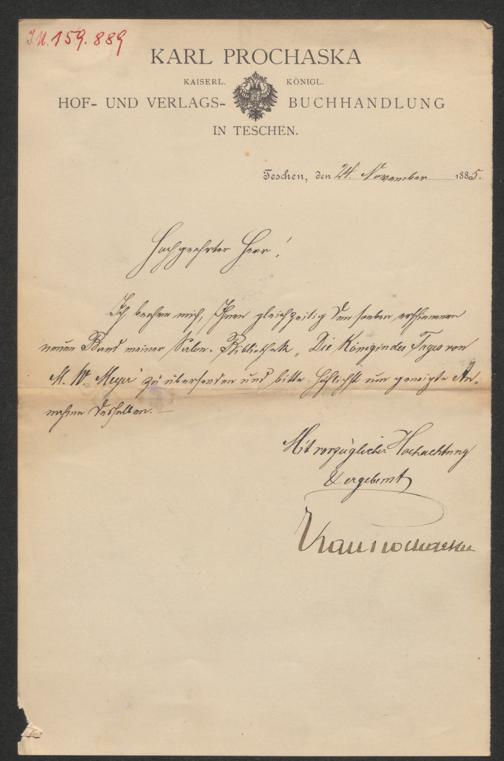 J.N. 159.889
KARL PROCHASKA
KAISERL. KÖNIGL.
HOF- UND VERLAGS- BUCHHANDLUNG
IN TESCHEN.
Teschen, den 24. November 1885.
Hochgeehrter Herr!
Ich beehre mich, Ihnen gleichzeitig den soeben erschienenen
neuen Band meiner Salon-Bibliothek „Die Königin des Tages von
M. W. Meyer“ zu übersenden und bitte höflichst um geneigte An-
nahme desselben.
Mit vorzüglicher Hochachtung
ergebenst
Karl Prochaska